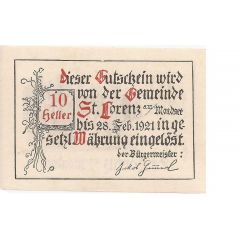 Dieser Gutschein wird
von der Gemeinde
10
Heller
St. Lorenz a/m Mondsee
bis 28. Feb. 1921 in ge
setzl Währung eingelöst.
der Bürgermeister: